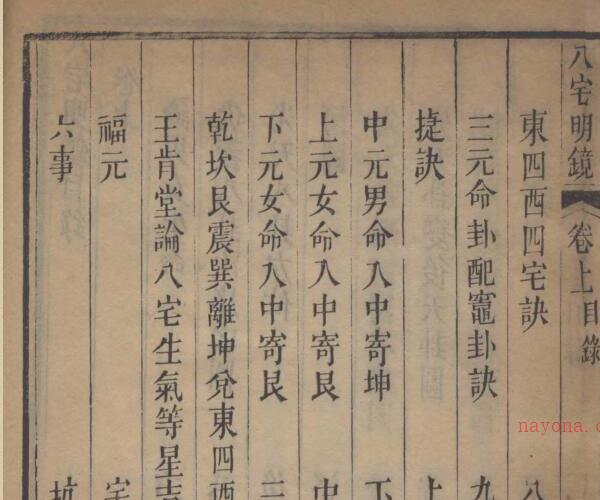 八宅明鏡 卷上目錄
東四西四宅訣 八
三元命卦配竈卦訣 九
捷訣 上
中元男命入中寄坤 下
上元女命入中寄艮 中
下元女命入中寄艮 三
乾坎艮震巽離坤兌東四西
王肯堂論八宅生氣等星吉
福元 宅
六事 坑
nayona.c